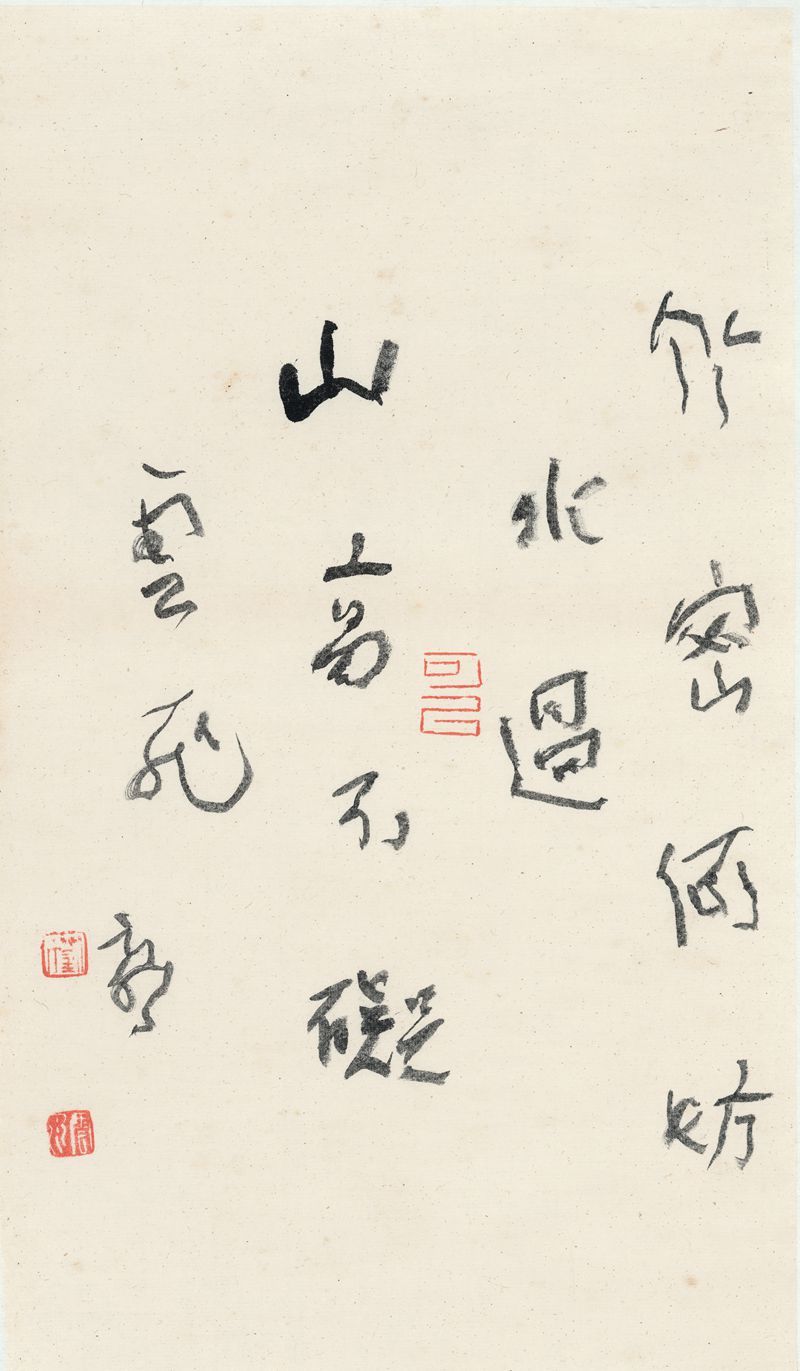 竹密何妨
水過
山高不礙
雲飛